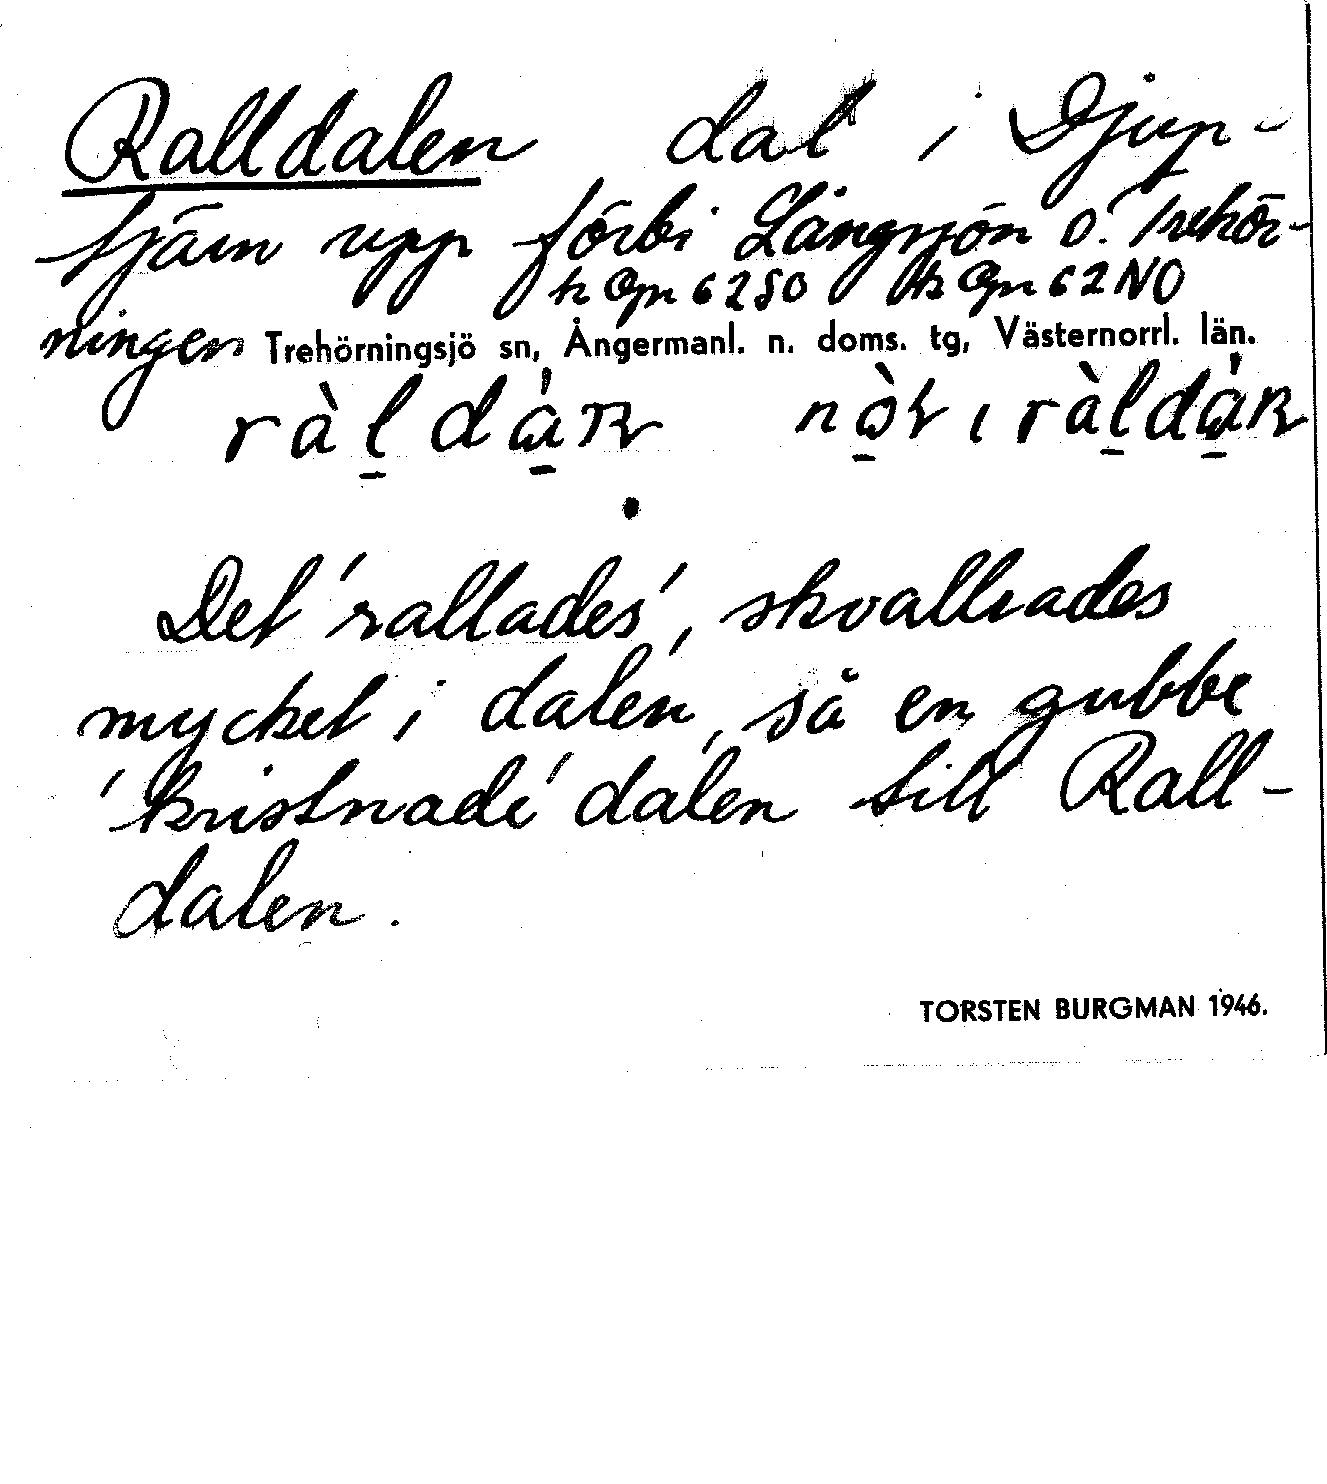 Ralldalen dal i Djup-
tjärn upp förbi Långsjön o. Trehör-
k Opn 62 SO k Opn 62 NO
ningen Trehörningsjö sn, Ångermanl. n. doms. tg, Västernorrl. län.
Det 'rallades', skvallrades
mycket i dalen, så en gubbe
'kristnade' dalen till Rall-
dalen.
TORSTEN BURGMAN 1946.